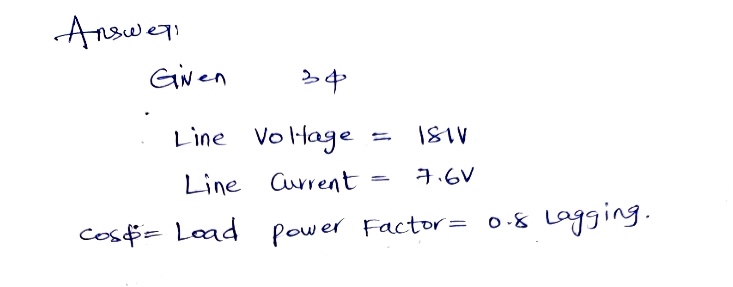 Answer:
Given 3ф
Line Voltage = 181V
Line Current = 7.6V
cosф = Load power Factor = 0.8 Lagging.